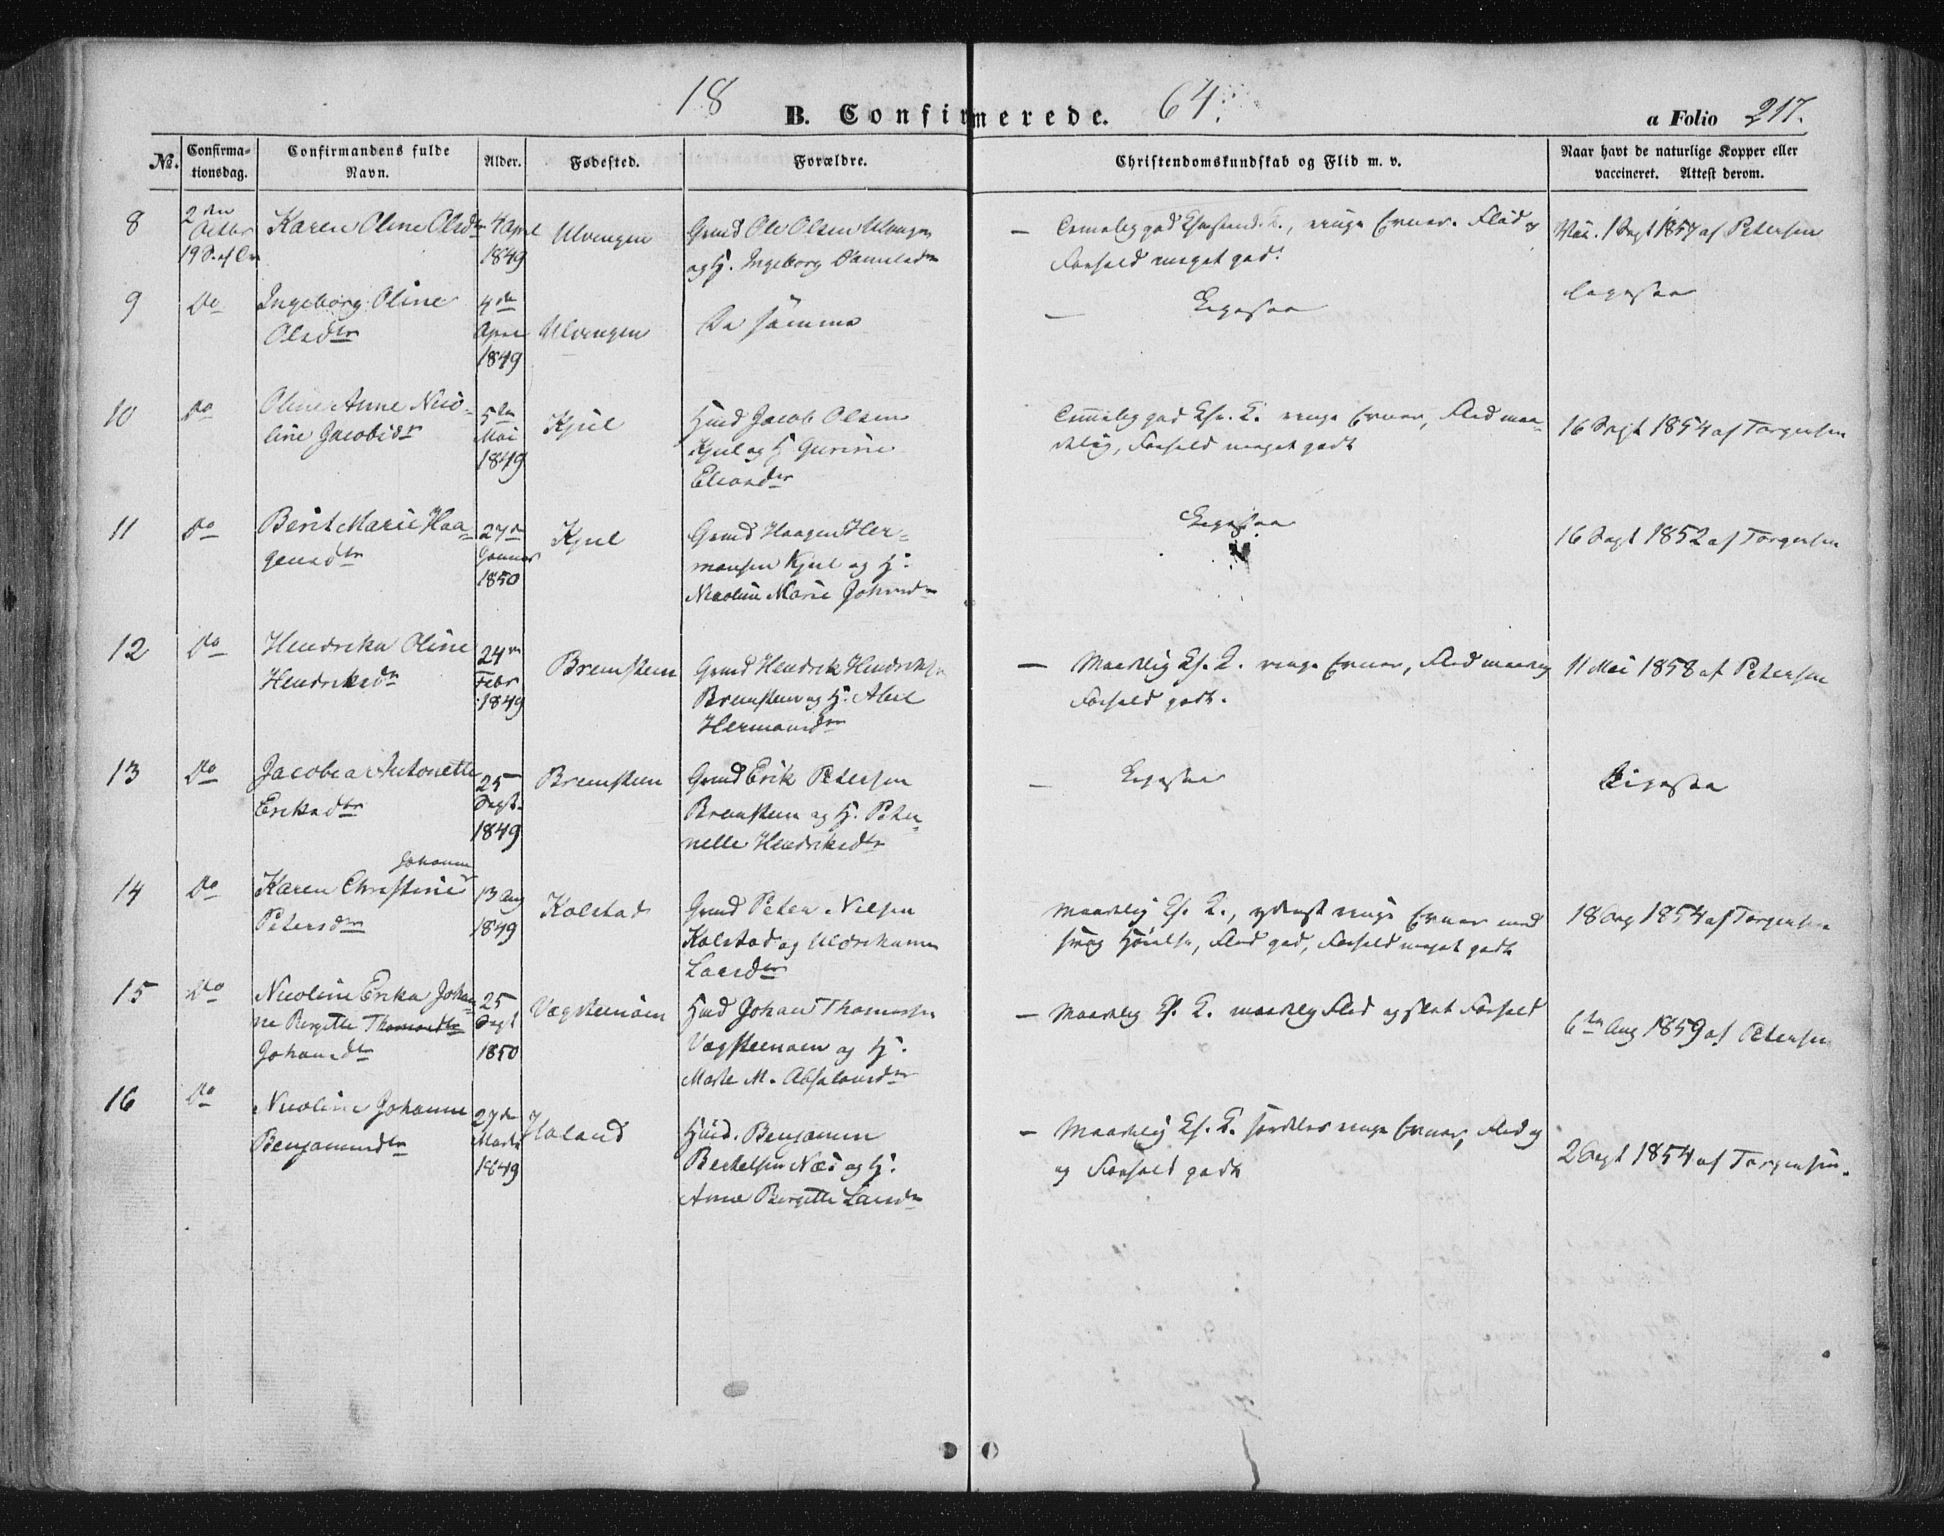 18 64.
B. Confirmerede. a Folio 217.
No. Confirmationsdag. Confirmandens fulde Navn. Alder. Fødested. Forældre. Christendomskundskab og Flid m. v. Naar havt de naturlige Kopper eller vaccineret. Attest derom.
8 2den Octbr 19 S. af Karen Oline Olsdtr 4 April 1849 Ulvengen
Gmd Ole Olsen Ulvengen
og H. Ingeborg Danielsdtr
– Temmelig god Christend. K., ringe Evner. Flid og
Forhold meget god.
Vac. 1 Sept 1854 af Petersen
9 Do Ingeborg Oline
Olsdtr
4de April 1849 Ulvengen De samme
– Ligesaa
Ligesaa
10 Do Oline Anne Nico-
line Jacobsdtr
5te Mai 1849 Kjul
Huusmd Jacob Olsen
Kjul og H Gurine
Eliasdtr
Temmelig god Chr. K. ringe Evner, Flid maa-
delig, Forhold meget godt
16 Sept 1854 af Torgersen
11 Do Berit Marie Haa-
gensdtr
27de Januar 1850 Kjul
Gmd Haagen Her-
mansen Kjul og H.
Nicoline Marie Johnsdtr
Ligesaa
16 Sept 1852 af Torgersen
12 Do Hendrika Oline
Hendriksdtr
24de Febr 1849 Bremsteen
Gmd Hendrik Hendriksen
Bremsteen og H. Abel
Hermansdtr
– Maadelig Ch. K. ringe Evner, Flid maadelig
Forhold godt.
11 Mai 1858 af Petersen
13 Do Jacobea Antonette
Eriksdtr
25 Sept. 1849 Bremsteen
Gmd Erik Petersen
Bremsteen og H. Peter-
nelle Hendriksdtr
– Ligesaa
Ligesaa
14 Do Karen Christine Johanne
Petersdtr
13 Aug 1849 Kolstad
Gmd Peter Nilsen
Kolstad og Uldrikanna
Larsdtr
Maadelig Ch. K., yderst ringe Evner med
svag Hørelse, Flid god, Forhold meget godt
18 Aug 1854 af Torgersen
15 Do Nicoline Erika Johan-
ne Bergitte Thomasdtr
Johansdtr
25 Sept 1850 Vægsteinøen
Huusmd Johan Thomassen
Vægsteinøen og H.
Marte M. Absalonsdtr
– Maadelig Ch. K. maadelig Flid og slet Forhold
6te Aug 1859 af Petersen
16 Do Nicoline Johanne
Benjaminsdtr
27de Marts 1849 Haland
Huusmd. Benjamin
Bertelsen Næs og H.
Anne Bergitte Larsdtr
– Maadelig Ch. K. særdeles ringe Evner, Flid og
og Forhold godt
2 Sept 1854 af Torgersen.